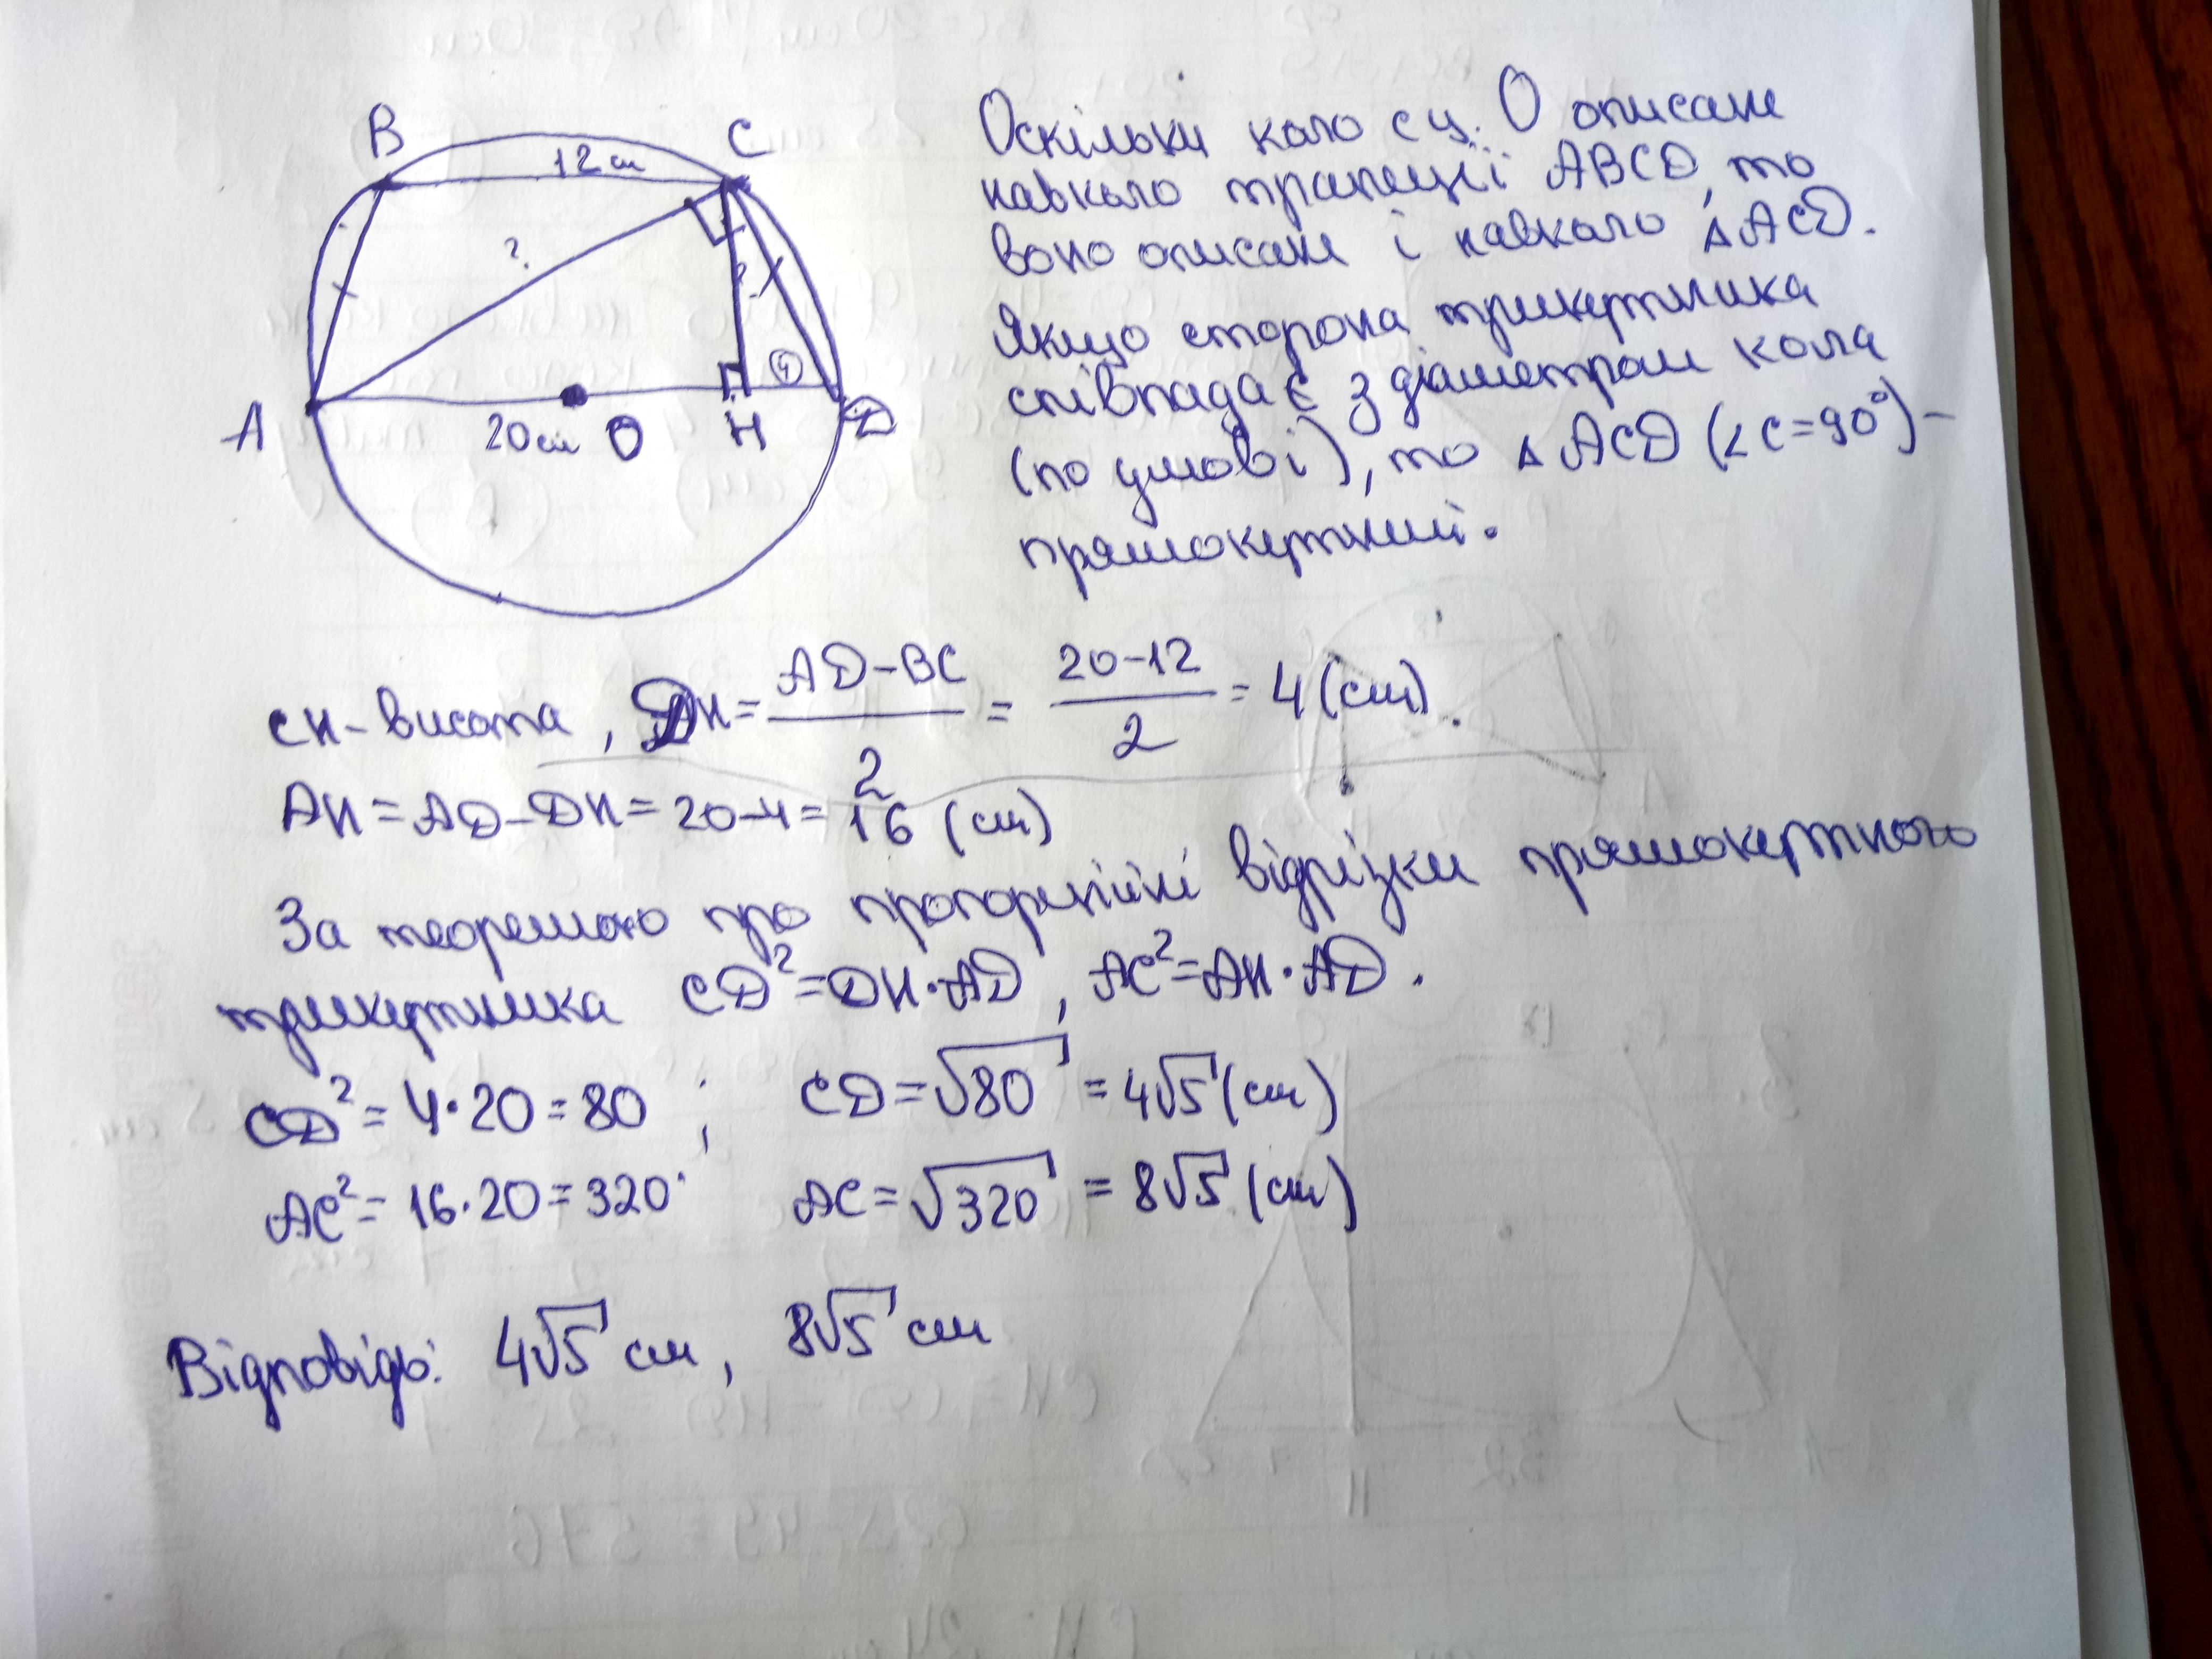 B
C
12 см
?
?
4
A
20 см
O
H
D
Оскільки коло с ц. О описане
навколо трапеції ABCD, то
воно описане і навколо △ACD.
Якщо сторона трикутника
співпадає з діаметром кола
(по умові), то △ACD (∠C=90°) –
прямокутний.
CH – висота, DH = (AD–BC)/2 = (20–12)/2 = 4 (см).
AH = AD–DH = 20–4 = 16 (см)
За теоремою про пропорційні відрізки прямокутного
трикутника CD² = DH·AD, AC² = AH·AD.
CD² = 4·20 = 80 ; CD = √80 = 4√5 (см)
AC² = 16·20 = 320 AC = √320 = 8√5 (см)
Відповідь: 4√5 см, 8√5 см